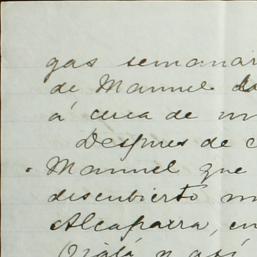 gas semanar
de Manuel de
á cerca de un
Despues de c
Manuel que
descubierto m
Alcaparra, en
Ojalá y así